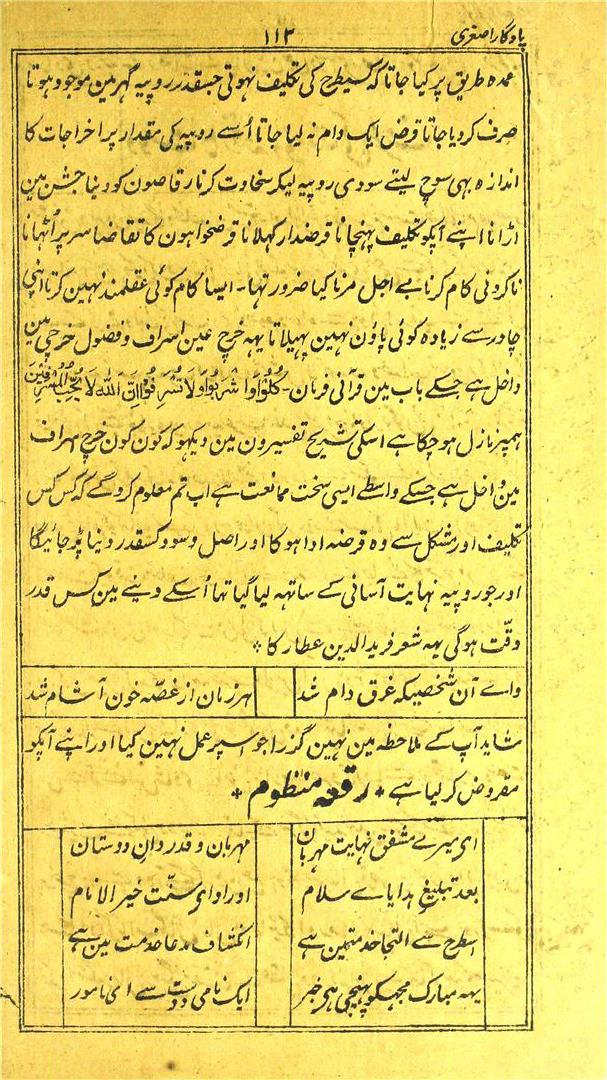 یادگار اصغری ۱۱۳
عمدہ طریق پر کیا جاتا کہ کسیطرح کی تکلیف نہوتی جسقدر روپیہ گہر مین موجود ہوتا
صرف کردیا جاتا قرض ایک دام نہ لیا جاتا اُسے روپیہ کی مقدار پر اخراجات کا
اندازہ بہی سوچ لیتے سودی روپیہ لیکر سخاوت کرنا رقاصون کو دینا جشن مین
اڑانا اپنے آپکو تکلیف پہنچانا قرضدار کہلانا قرضخواہون کا تقاضا سر پر اُٹہانا
ناکردنی کام کرنا بے اجل مرنا کیا ضرور تہا۔ ایسا کام کوئی عقلمند نہین کرتا اپنی
چادر سے زیادہ کوئی پاؤن نہین پہیلاتا یہہ خرچ عین اسراف و فضول خرچی مین
داخل ہے جسکے باب مین قرآنی فرمان۔ كُلُوْا وَاشْرَبُوْا وَلَا تُسْرِفُوْا اِنَّ اللّٰهَ لَا يُحِبُّ الْمُسْرِفِيْنَ
ہمپر نازل ہو چکا ہے اسکی تشریح تفسیرون مین دیکہو کہ کون کون خرچ اسراف
مین داخل ہے جسکے واسطے ایسی سخت ممانعت ہے اب تم معلوم کروگے کہ کس کس
تکلیف اور مشکل سے وہ قرضہ ادا ہوگا اور اصل و سود کسقدر دینا پڑ جائیگا
اور جو روپیہ نہایت آسانی کے ساتہہ لیا گیا تہا اُسکے دینے مین کس قدر
دقّت ہوگی یہہ شعر فرید الدین عطار کا *
واے آن شخصیکہ غرق دام شد ہر زمان از غصّہ خون آشام شد
شاید آپ کے ملاحظہ مین نہین گذرا جو اسپر عمل نہین کیا اور اپنے آپکو
مقروض کرلیا ہے * رقعہ منظوم *
ای میرے مشفق نہایت مہربان مہربان و قدردان دوستان
بعد تبلیغِ ہدایاے سلام اور اداے سنّت خیر الانام
اسطرح سے التجا خدمتمین ہے انکشاف مدعا خدمت مین ہے
یہہ مبارک مجہکو پہنچی ہی خبر ایک نامی دوست سے ای نامور